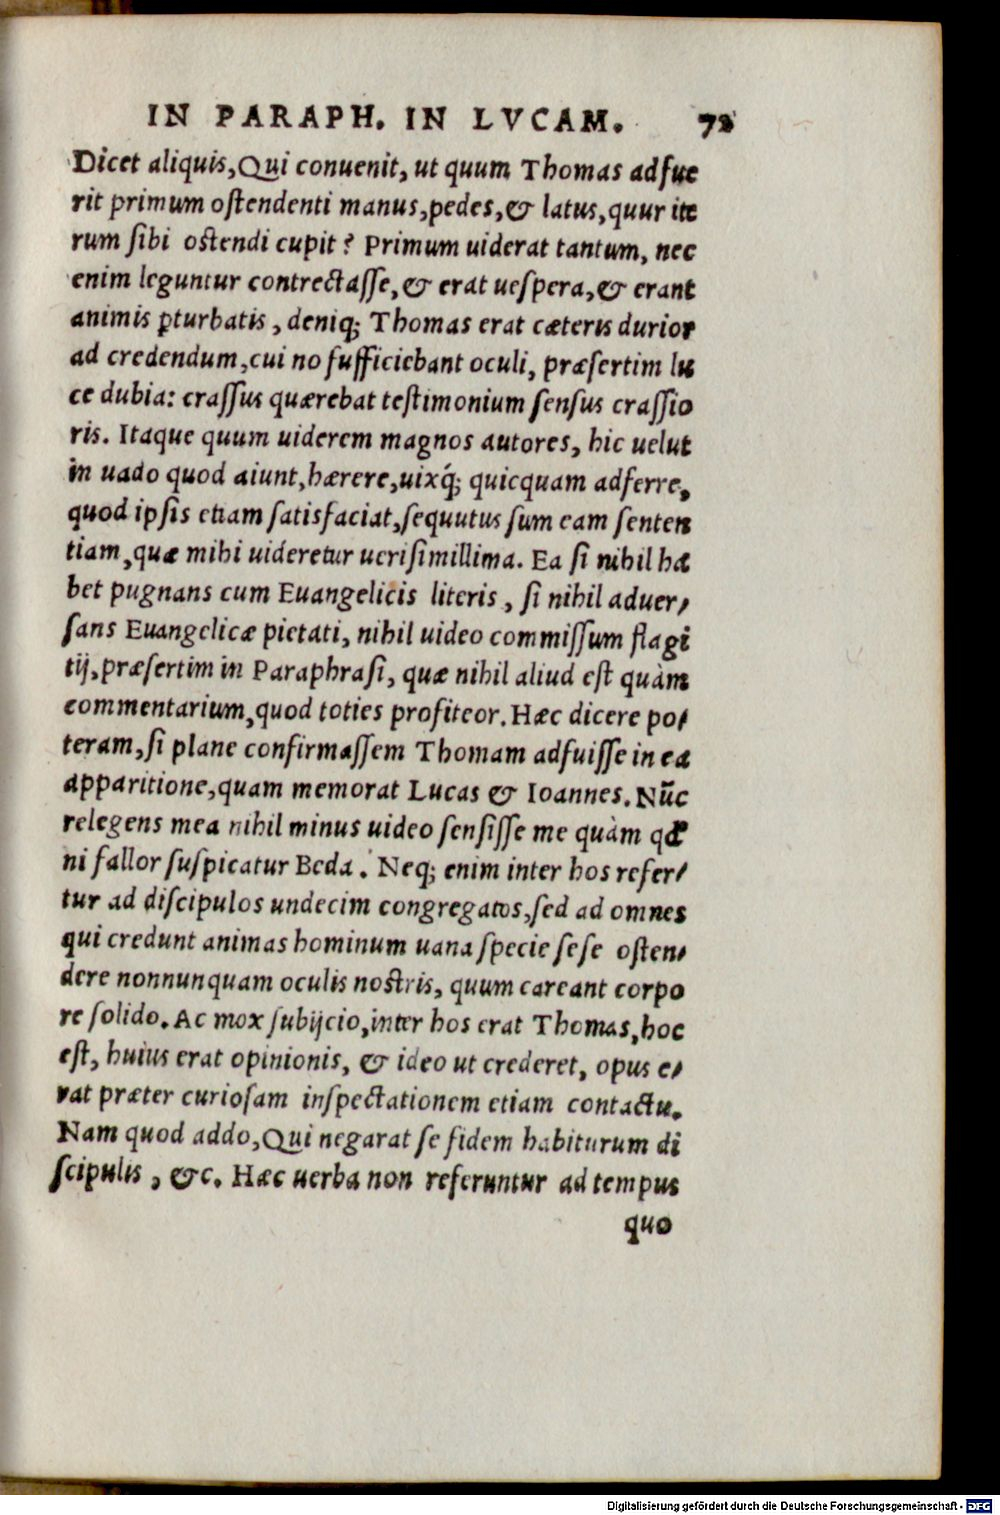 IN PARAPH. IN LVCAM. 72
Dicet aliquis, Qui conuenit, ut quum Thomas adfue
rit primum oſtendenti manus, pedes, & latus, quur ite
rum ſibi oſtendi cupit? Primum uiderat tantum, nec
enim leguntur contrectaſſe, & erat ueſpera, & erant
animis ꝑturbatis, deniq; Thomas erat cæteris durior
ad credendum, cui no ſufficiebant oculi, præſertim lu
ce dubia: craſſus quærebat teſtimonium ſenſus craſſio
ris. Itaque quum uiderem magnos autores, hic uelut
in uado quod aiunt, hærere, uixq́; quicquam adferre,
quod ipſis etiam ſatisfaciat, ſequutus ſum eam ſenten
tiam, quæ mihi uideretur ueriſimillima. Ea ſi nihil ha
bet pugnans cum Euangelicis literis, ſi nihil aduer⸗
ſans Euangelicæ pietati, nihil uideo commiſſum flagi
tij, præſertim in Paraphraſi, quæ nihil aliud eſt quàm
commentarium, quod toties profiteor. Hæc dicere po⸗
teram, ſi plane confirmaſſem Thomam adfuiſſe in ea
apparitione, quam memorat Lucas & Ioannes. Nūc
relegens mea nihil minus uideo ſenſiſſe me quàm qđ
ni fallor ſuſpicatur Beda. Neq; enim inter hos refer⸗
tur ad diſcipulos undecim congregatos, ſed ad omnes
qui credunt animas hominum uana ſpecie ſeſe oſten⸗
dere nonnunquam oculis noſtris, quum careant corpo
re ſolido. Ac mox ſubijcio, inter hos erat Thomas, hoc
eſt, huius erat opinionis, & ideo ut crederet, opus e⸗
rat præter curioſam inſpectationem etiam contactu.
Nam quod addo, Qui negarat ſe fidem habiturum di
ſcipulis, &c. Hæc uerba non referuntur ad tempus
quo
Digitalisierung gefördert durch die Deutsche Forschungsgemeinschaft - DFG